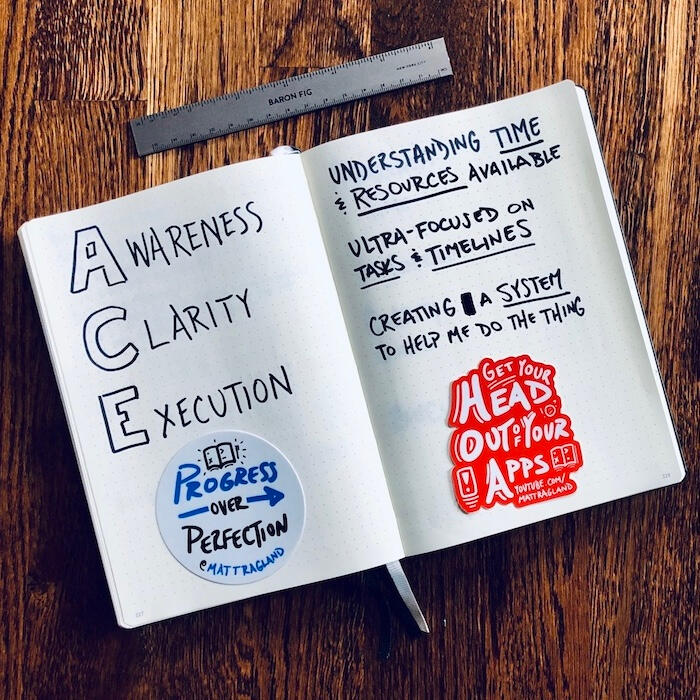 BARON FIG
NEW YORK CITY
AWARENESS
CLARITY
EXECUTION
PROGRESS
OVER
PERFECTION
@MATTRAGLAND
UNDERSTANDING TIME
& RESOURCES AVAILABLE
ULTRA-FOCUSED ON
TASKS & TIMELINES
CREATING A SYSTEM
TO HELP ME DO THE THING
GET YOUR
HEAD
OUT OF YOUR
APPS
YOUTUBE.COM/
MATTRAGLAND